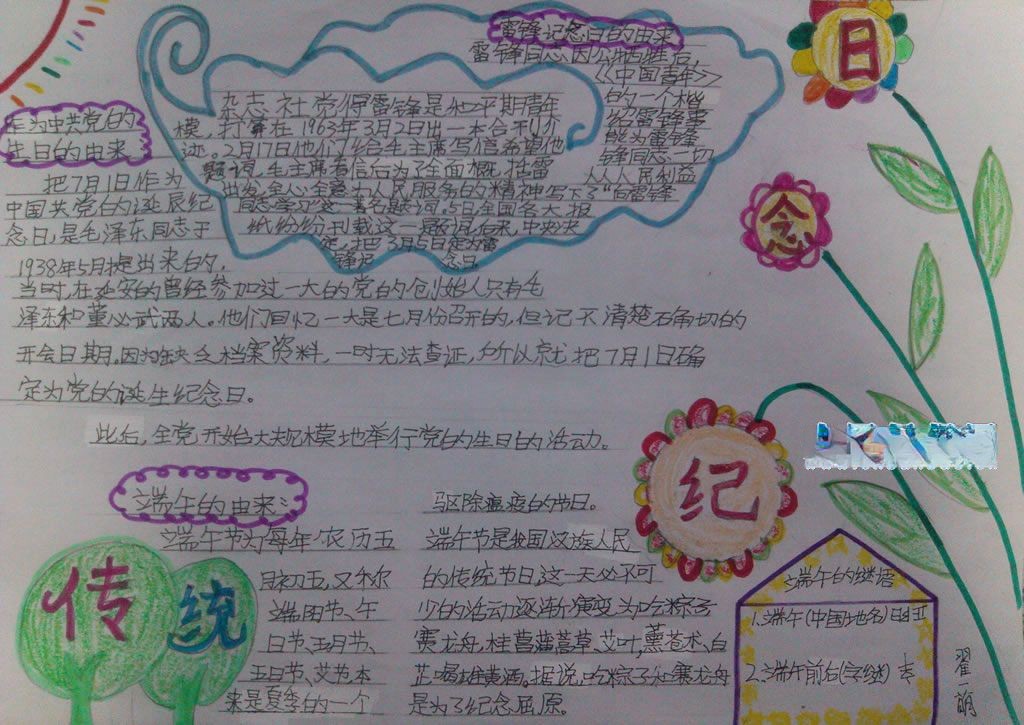 雷锋记念日的由来
雷锋同志因公牺牲后,
《中国青年》
杂志社党得雷锋是和平期青年
的一个楷
模,打算在1963年3月2日出一本合刊介
绍雷锋事
迹。2月17日他们才给毛主席写信希望他
能为雷锋
题词,毛主席看信后为了全面概括雷
锋同志一切
从人民利益
出发,全心全意为人民服务的精神写下了"向雷锋
同志学习"这一著名题词。5日全国各大报
纸纷纷刊载这一题词,后来,中央决
定,把3月5日定为雷
锋记念日。
作为中共党的
生日的由来
把7月1日作为
中国共党的诞辰纪
念日,是毛泽东同志于
1938年5月提出来的,
当时,在延安的曾经参加过一大的党的创始人只有毛
泽东和董必武两人。他们回忆一大是七月份召开的,但记不清楚确切的
开会日期。因为缺乏档案资料,一时无法查证,所以就把7月1日确
定为党的诞生纪念日。
此后,全党开始大规模地举行党的生日的活动。
端午的由来:
端午节为每年农历五
月初五,又称
端阳节、午
日节、五月节、
五日节、艾节本
来是夏季的一个
驱除瘟疫的节日。
端午节是我国汉族人民
的传统节日,这一天必不可
少的活动逐渐演变为吃粽子
赛龙舟,挂菖蒲蒿草、艾叶,薰苍术、白
芷,喝雄黄酒。据说,吃粽子和赛龙舟
是为了纪念屈原。
传统
纪
念
日
端午的谜语
1.端午(中国地名)
2.端午前后(字谜)
翟一萌